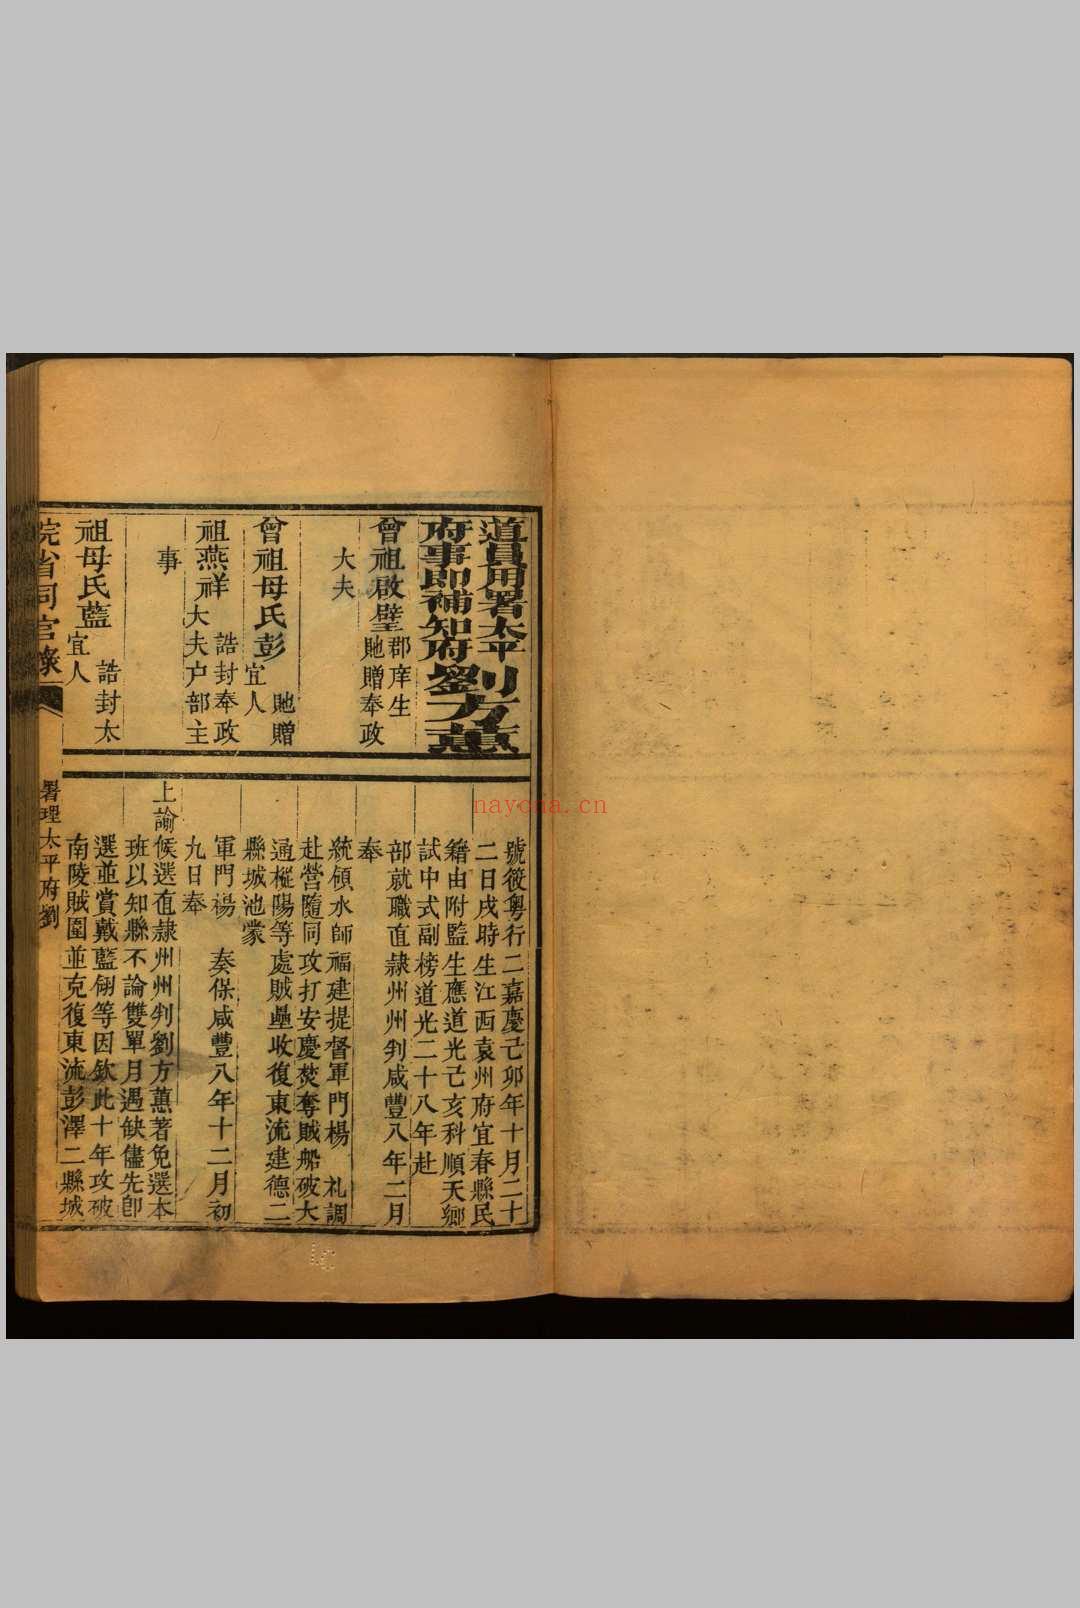 道員用署太平
府事即補知府
劉方蕙
曾祖啟璧
郡庠生
貤贈奉政
大夫
曾祖母氏彭
貤贈
宜人
祖燕祥
誥封奉政
大夫户部主
事
祖母氏藍
誥封太
宜人
號筱粤行二嘉慶己卯年十月二十
二日戌時生江西袁州府宜春縣民
籍由附監生應道光己亥科順天鄉
試中式副榜道光二十八年赴
部就職直隷州州判咸豐八年二月
奉
統領水師福建提督軍門楊 礼調
赴營隨同攻打安慶焚奪賊船破大
通樅陽等處賊壘收復東流建德二
縣城池蒙
軍門楊 奏保咸豐八年十二月初
九日奉
上諭候選直隷州州判劉方蕙著免選本
班以知縣不論雙單月遇缺儘先卽
選並賞戴藍翎等因欽此十年攻破
南陵賊圍並克復東流彭澤二縣城
皖省同官錄
署理太平府劉
nayona.cn